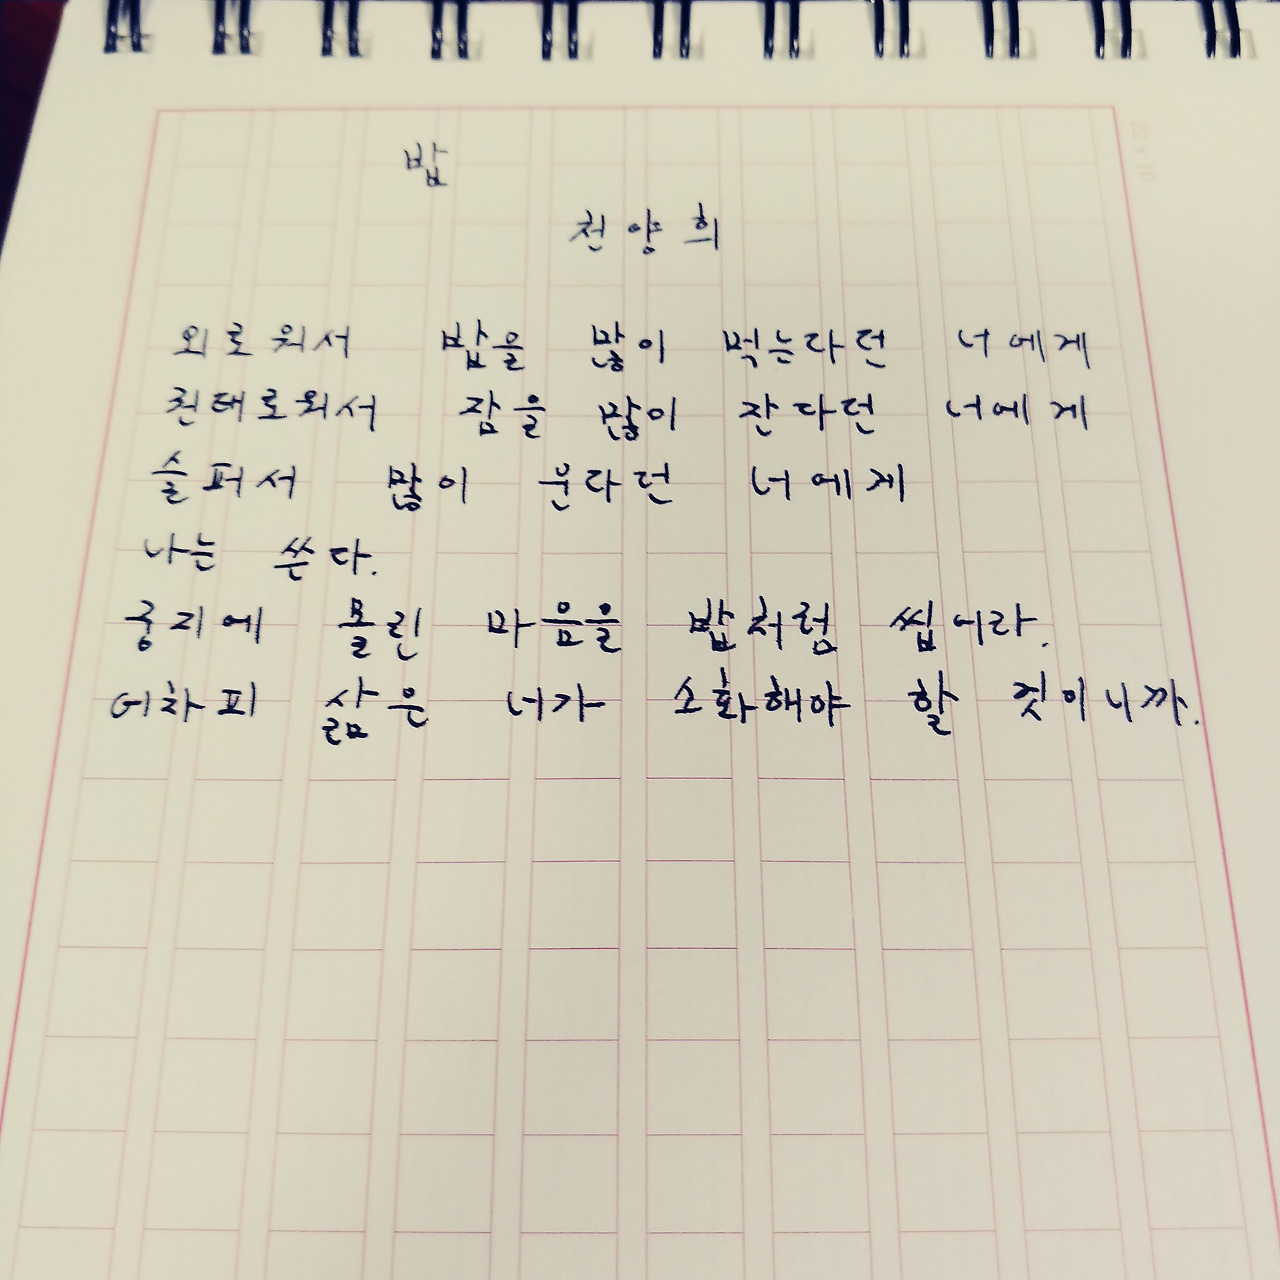 밥
천양희
외로워서 밥을 많이 먹는다던 너에게
권태로워서 잠을 많이 잔다던 너에게
슬퍼서 많이 운다던 너에게
나는 쓴다.
궁지에 몰린 마음을 밥처럼 씹어라.
어차피 삶은 너가 소화해야 할 것이니까.
22 x 10